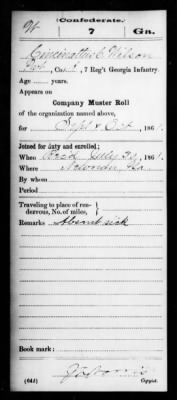 Confederate.
7 Ga.
Wilson
Co. , 7 Reg't Georgia Infantry.
Age years.
Appears on
Company Muster Roll
of the organization named above,
for Sept & Oct , 1861.
Joined for duty and enrolled:
When July 30, 1861.
Where , Ga.
By whom
Period
Traveling to place of ren-
dezvous, No. of miles,
Remarks Absent sick
Book mark:
(641) Copyist.